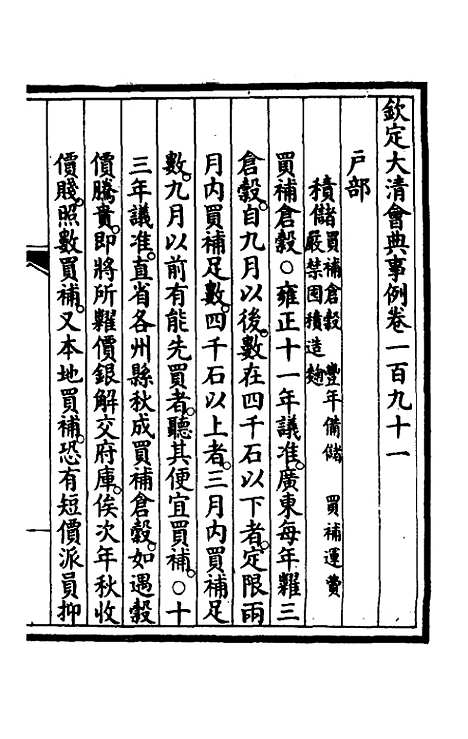 欽定大清會典事例卷一百九十一
戶部
積儲買補倉穀 豐年備儲 買補運費
嚴禁囤積造麯
買補倉穀○雍正十一年議准。廣東每年糶三
倉穀。自九月以後。數在四千石以下者。定限兩
月內買補足數。四千石以上者。三月內買補足
數。九月以前有能先買者。聽其便宜買補。○十
三年議准。直省各州縣秋成買補倉穀。如遇穀
價騰貴。即將所糶價銀解交府庫。俟次年秋收
價賤。照數買補。又本地買補。恐有短價派員抑